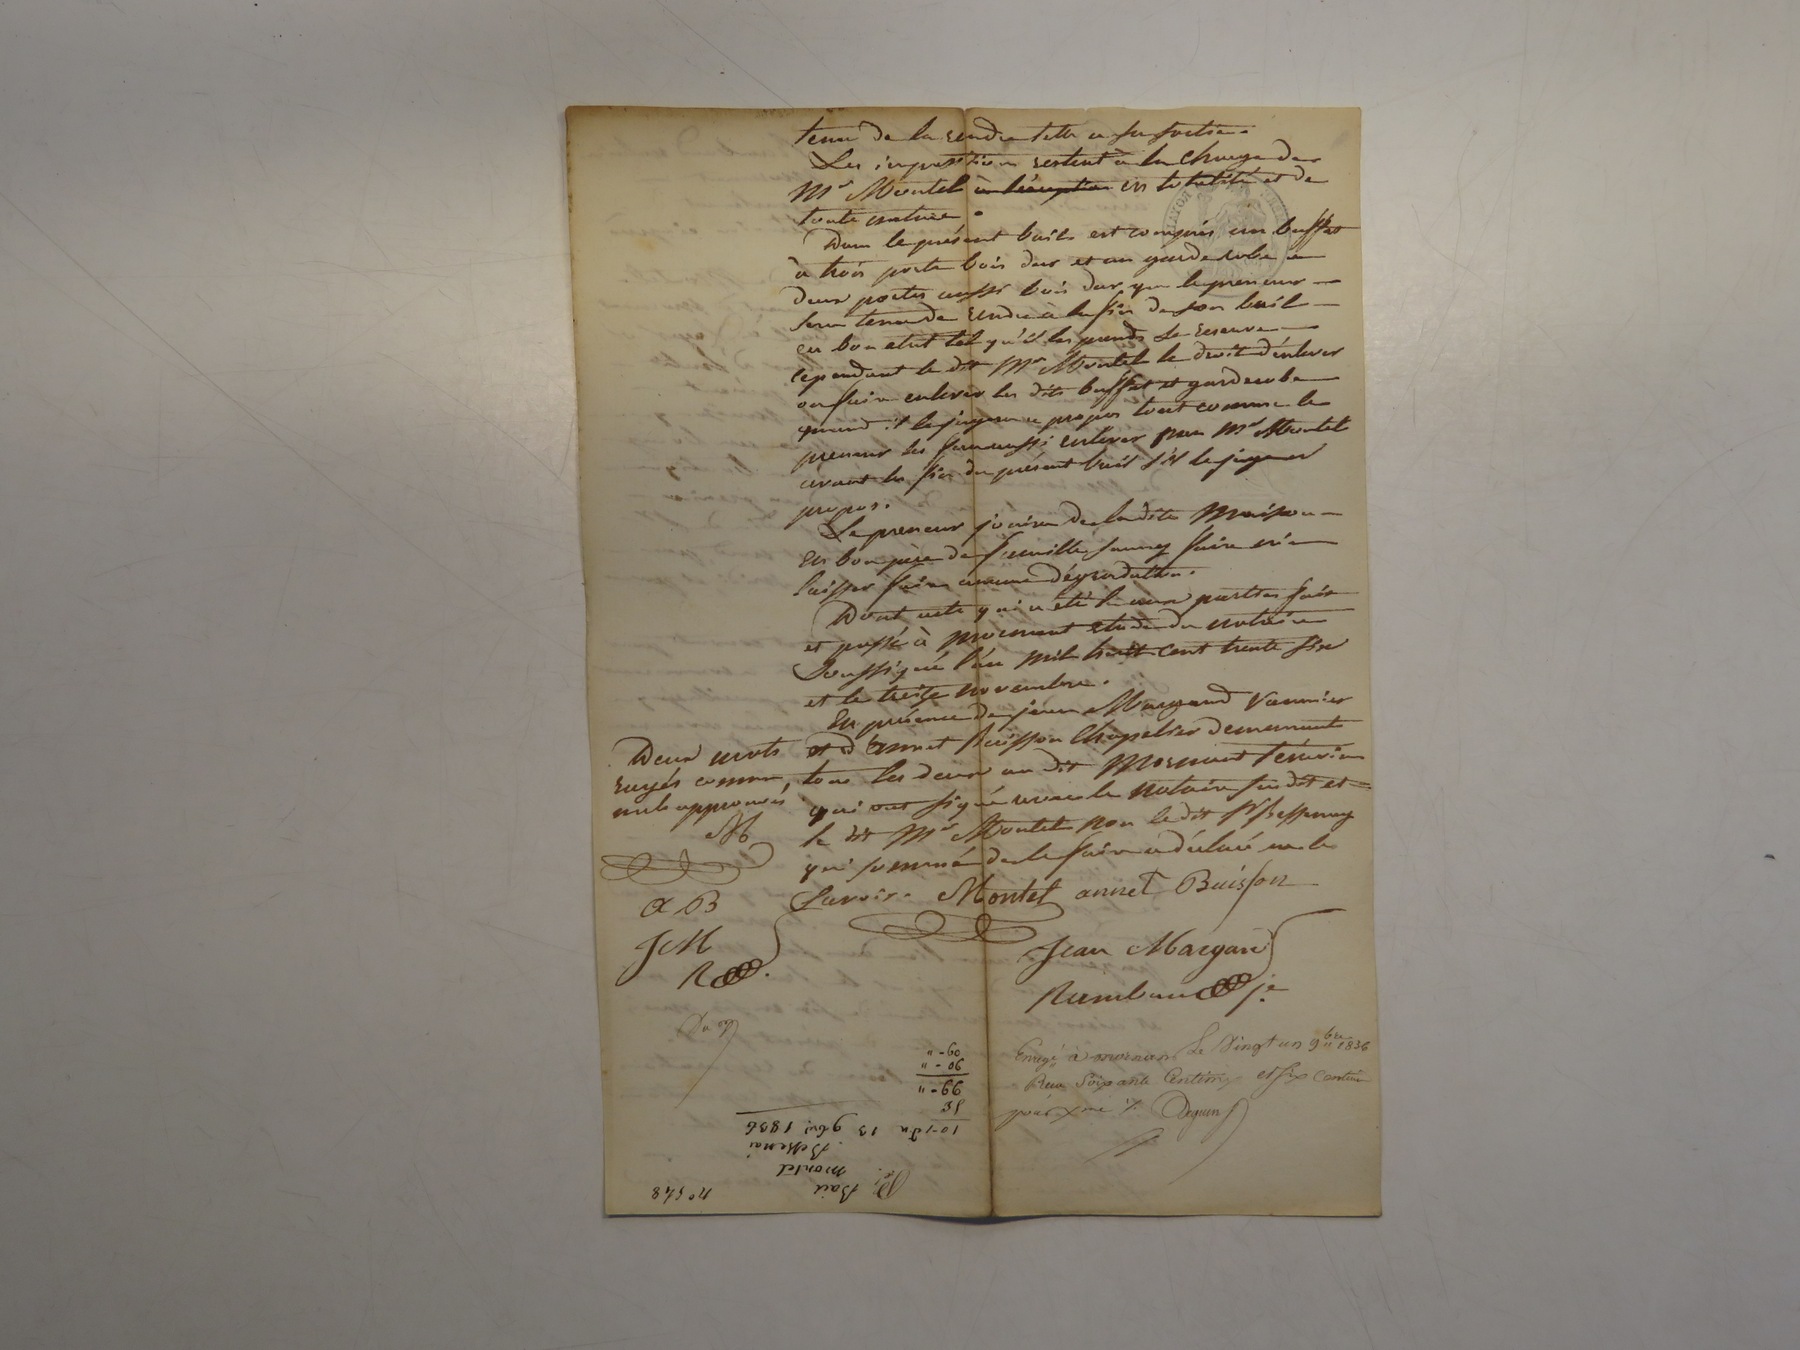 tenu de la rendre telle a sa sortie.
Les impositions restent à la charge de
Mr Montel à l'éxception en totalité et de
toute nature.
Dans le présent bail est compris un buffet
à trois porte bois dur et un garderobe a
deux portes aussi bois dur que le preneur
sera tenu de rendre à la fin de son bail
en bon etat tel qu'il les prend. Se reserve
cependant le dit Mr Montel le droit d'enlever
ou faire enlever les dits buffet et garderobe
quand il le jugera a propos tout comme le
preneur les fera aussi enlever par Mr Montel
avant la fin du présent bail s'il le juge a
propos.
Le preneur jouira de la dite Maison
en bon père de famille sans y faire ni
laisser faire aucune dégradation.
Dont acte qui a été lu aux parties fait
et passé à Mornant etude du notaire
Soussigné l'an mil huit cent trente six
et le treize novembre.
En présence de jean Margand Vannier
et d'Annet Buisson Chapelier demeurant
tous les deux au dit Mornant temoins
qui ont signé avec le notaire susdit et
le dit Mr Montel non le dit Sr Bessenay
qui sommé de le faire a déclaré ne le
Savoir. Montel annet Buisson
Deux mots
rayés comme
nuls approuvés
M
A B
J M
R
Jean Margand
Enregé à mornant Le Vingt un 9bre 1836
Reçu Soixante Centimes et six centimes
pour xme %. Deguin
60 - "
90 - "
99 - "
10-1 Du 13 9bre 1836
Bessenai
montel
Bail
n° 548